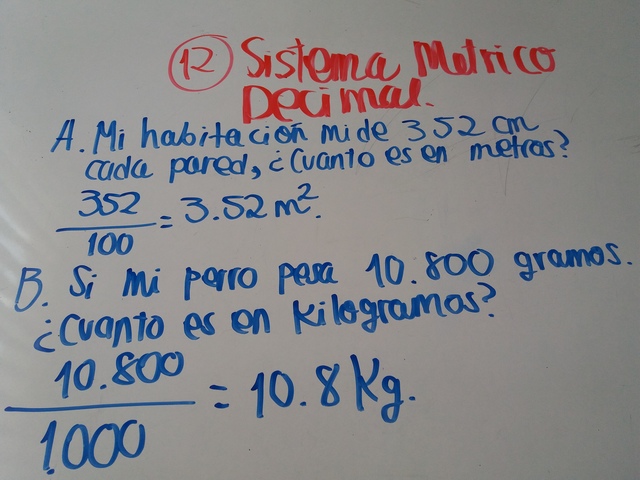 12 Sistema Metrico
Decimal.
A. Mi habitación mide 352 cm
cada pared, ¿Cuanto es en metros?
352
100
= 3.52 m².
B. Si mi perro pesa 10.800 gramos.
¿Cuanto es en Kilogramos?
10.800
1.000
= 10.8 Kg.